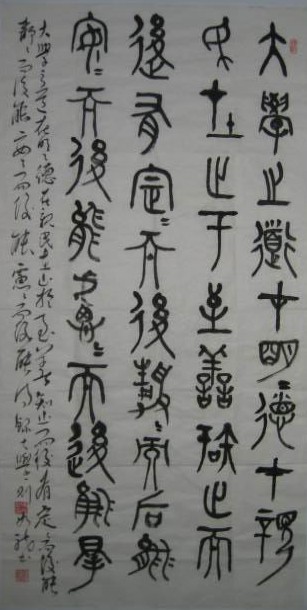 大學之道在明〻德在親
民在止于至善知止而
後有定〻而後靜〻而后能
安〻而後能慮〻而後能得
大學之道在明〻德在親民在止於至善知止而後有定而後能
靜〻而後能安〻而後能慮而後能得錄大學